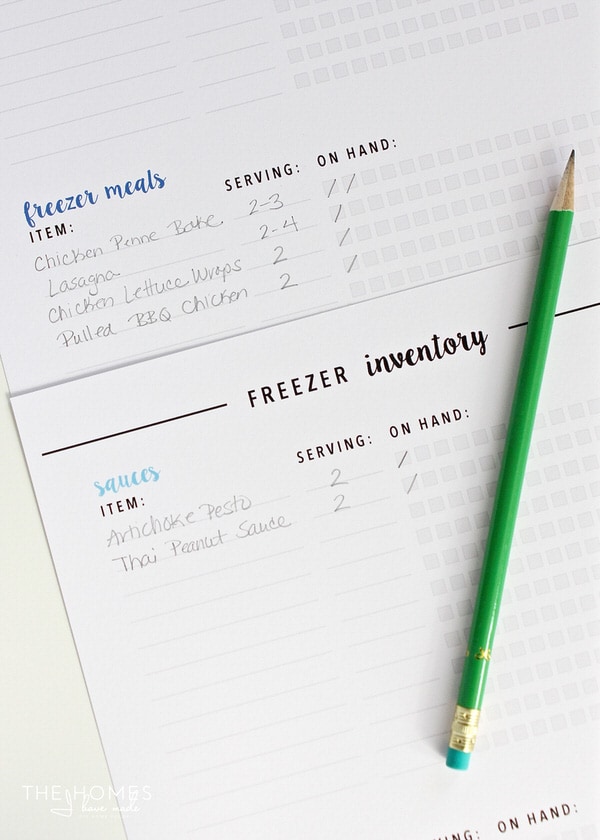 freezer meals
ITEM: SERVING: ON HAND:
Chicken Penne Bake 2-3 / /
Lasagna 2-4 /
Chicken Lettuce Wraps 2 /
Pulled BBQ Chicken 2 /
FREEZER inventory
sauces
ITEM: SERVING: ON HAND:
Artichoke Pesto 2 /
Thai Peanut Sauce 2 /
THE HOMES
I have made
ON HAND: